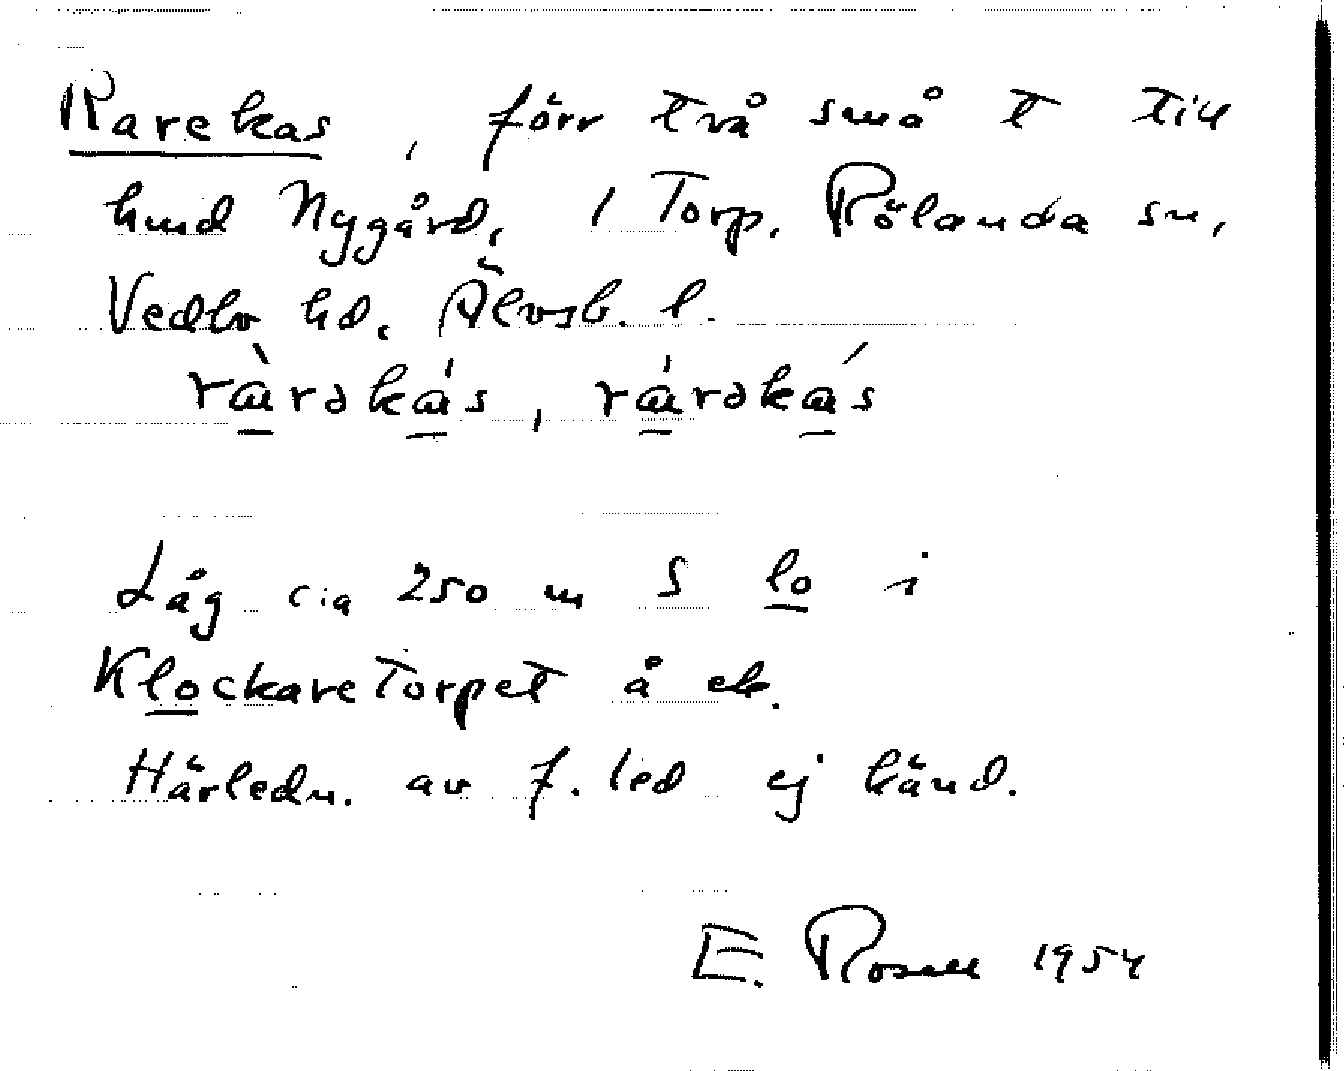 Rarekas, förr två små t till
hmd Nygård, 1 Torp. Rölanda sn,
Vedbo hd. Älvsb. l.
Låg c:a 250 m S lo i
Klockaretorpet å ek.
Härledn. av f. led ej känd.
E. Rosell 1954